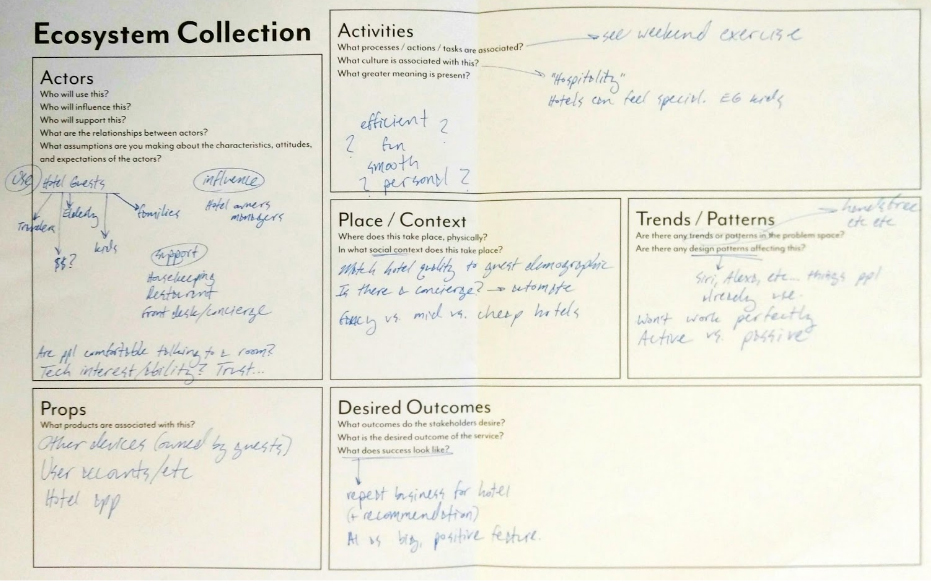 Ecosystem Collection
Actors
Who will use this?
Who will influence this?
Who will support this?
What are the relationships between actors?
What assumptions are you making about the characteristics, attitudes,
and expectations of the actors?
use Hotel Guests
Travelers
Elderly
families
$$?
kids
influence
Hotel owners
managers
support
Housekeeping
Restaurant
Front desk/concierge
Are ppl comfortable talking to a room?
Tech interest/ability? Trust...
Activities
What processes / actions / tasks are associated?
What culture is associated with this?
What greater meaning is present?
see weekend exercise
"Hospitality"
Hotels can feel special. EG kids
efficient ?
? fun
smooth
? personal ?
Place / Context
Where does this take place, physically?
In what social context does this take place?
Match hotel quality to guest demographic
Is there a concierge? → automate
Fancy vs. mid vs. cheap hotels
Trends / Patterns
Are there any trends or patterns in the problem space?
Are there any design patterns affecting this?
etc etc
Siri, Alexa, etc... things ppl
already use.
Won't work perfectly
Active vs. passive
Props
What products are associated with this?
Other devices (owned by guests)
User accounts/etc
Hotel app
Desired Outcomes
What outcomes do the stakeholders desire?
What is the desired outcome of the service?
What does success look like?
repeat business for hotel
(+ recommendation)
AI as big, positive feature.